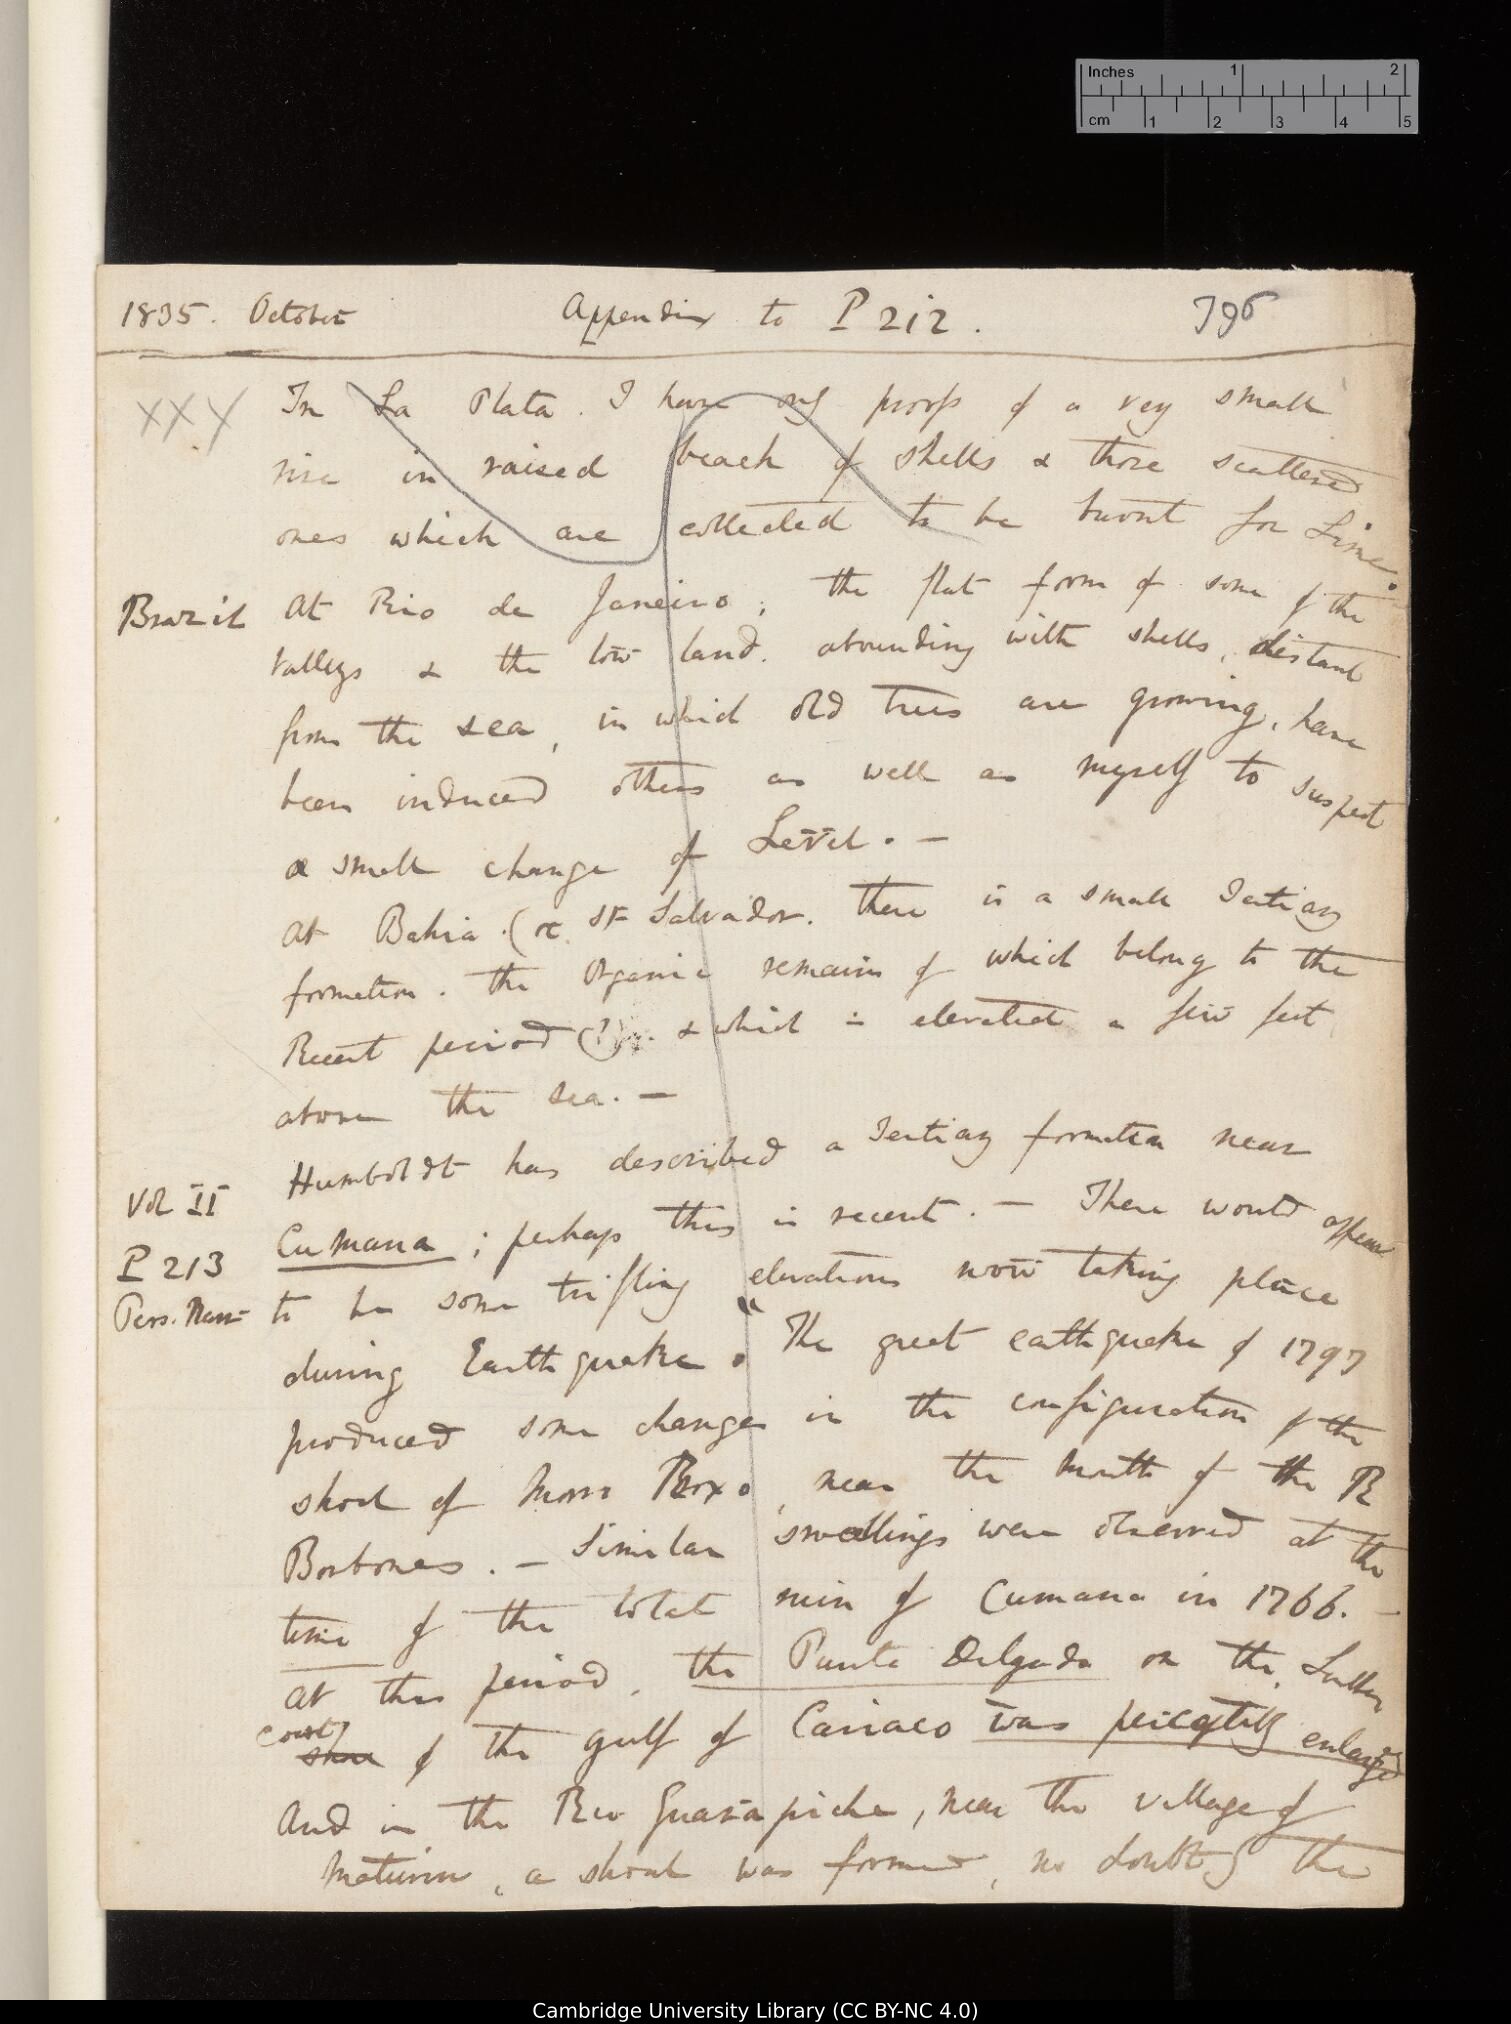 Inches 1 2
cm 1 2 3 4 5
1835. October Appendix to P 212. 796
XXX In La Plata. I have only proofs of a very small
rise in raised beach of shells & those scattered
ones which are collected to be burnt for Lime.
Brazil At Rio de Janeiro; the flat form of some of the
valleys & the low land. abounding with shells, distant
from the sea, in which old trees are growing, have
been induced others as well as myself to suspect
a small change of Level. —
At Bahia (or St Salvador. there is a small Tertiary
formation. the organic remains of which belong to the
Recent period (?). & which is elevated a few feet
above the sea. —
Humboldt has described a Tertiary formation near
Vol II
Cumana; perhaps this is recent. — There would appear
P 213
to be some trifling elevations now taking place
Pers. Narr
during Earthquake. "The great earthquake of 1797
produced some changes in the configuration of the
shoal of Morro Roxo, near the mouth of the R
Borbones. — Similar swellings were observed at the
time of the total ruin of Cumana in 1766. —
At this period, the Punta Delgada on the Southern
coast shore of the gulf of Cariaco was perceptibly enlarged
And in the Rio Guarapiche, near the village of
Maturin, a shoal was formed, no doubt by the
Cambridge University Library (CC BY-NC 4.0)